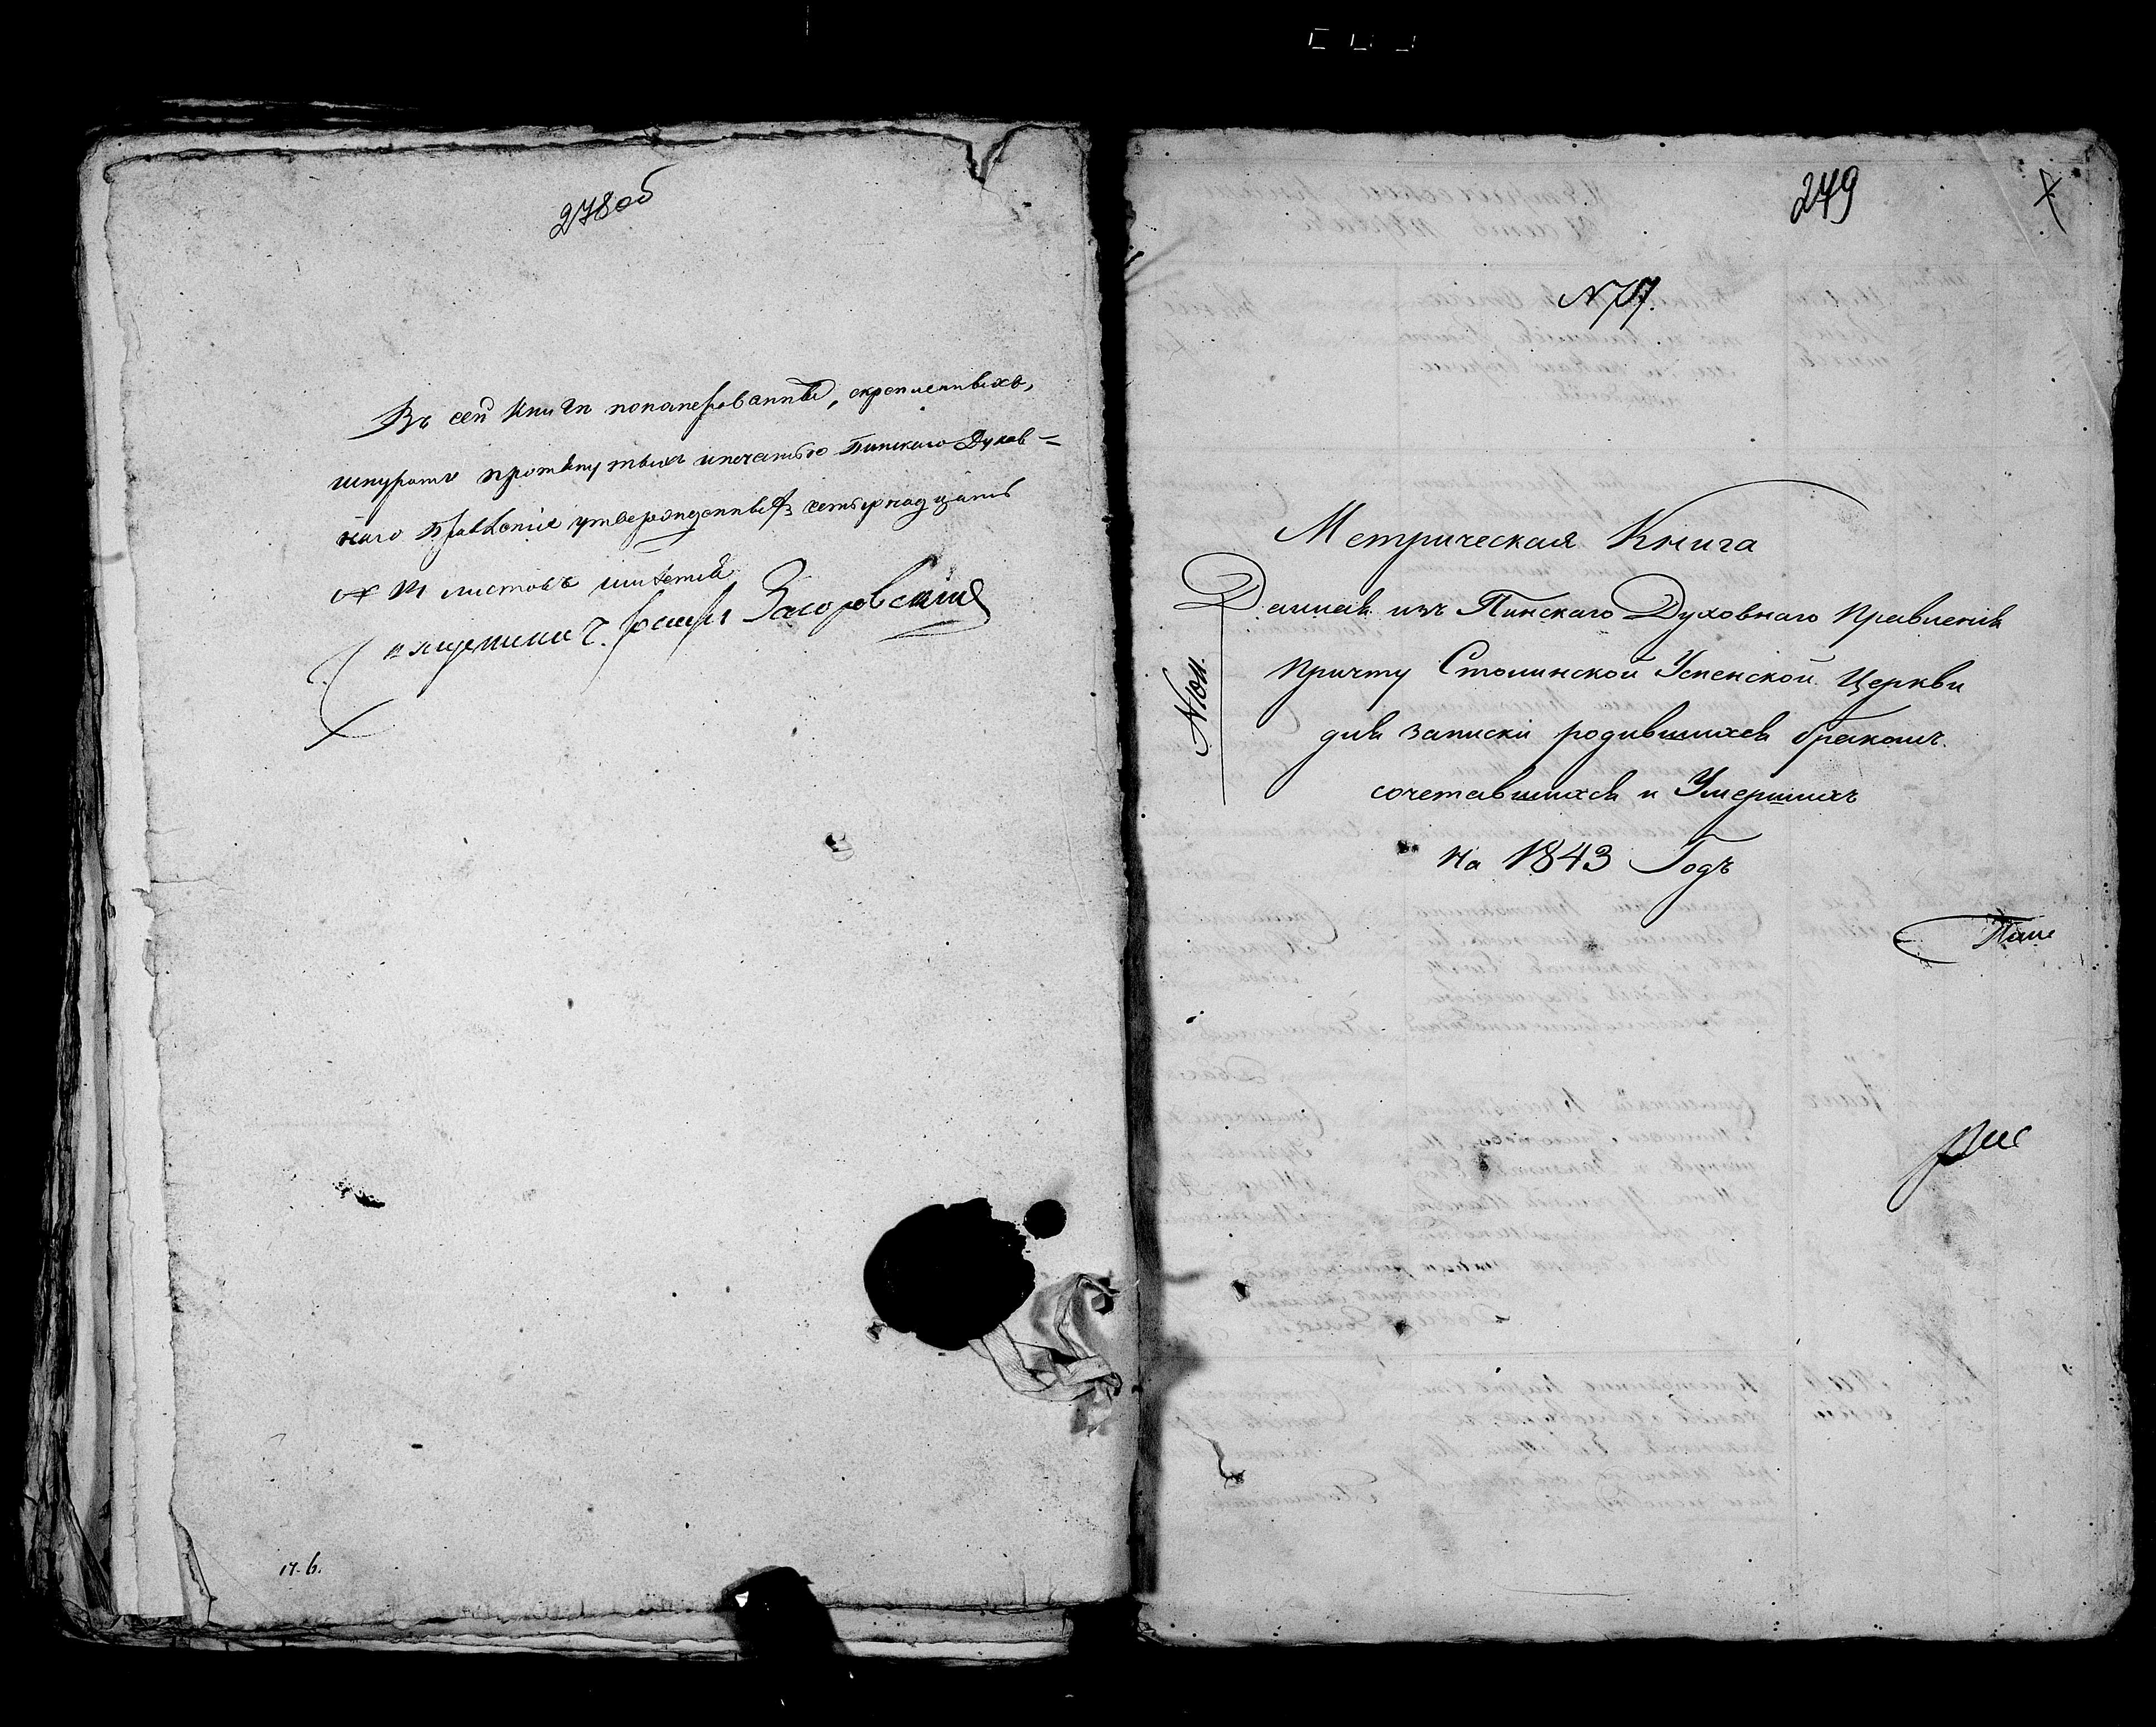 278 об
Въ сей книги понамерованныхъ, скрепленныхъ,
шнуромъ протянутыхъ и печатью Пинскаго Духов-
наго Правленія утвержденныхъ четырнадцать
листовъ
Священникъ Іосифъ Загоровскій
17-6.
279
№ 77.
Метрическая Книга
Данная изъ Пинскаго Духовнаго Правленія
Причту Столинской Успенской Церкви
для записки родившихся бракомъ
сочетавшихся и Умершихъ
на 1843 Годъ